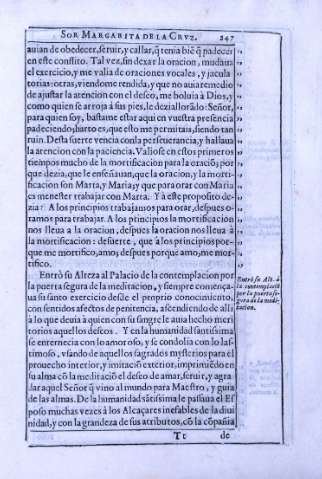 SOR MARGARITA DE LA CRVZ. 247
auian de obedecer, seruir, y callar, q̃ tenia biẽ q̃ padecer
en este conflito. Tal vez, sin dexar la oracion, mudaua
el exercicio, y me valia de oraciones vocales, y jacula
torias: otras, viendome rendida, y que no auia remedio
de ajustar la atencion con el desseo, me boluia à Dios, y
como quien se arroja à sus pies, le dezia llorãdo: Señor,
para quien soy, bastame estar aqui en vuestra presencia
padeciendo, harto es, que esto me permitais, siendo tan
ruin. Desta suerte vencia con la perseuerancia, y hallaua
la atencion con la paciencia. Valiose en estos primeros
tiempos mucho de la mortificacion para la oraciõ; por
que dezia, que le enseñauan, que la oracion, y la morti-
ficacion son Marta, y Maria, y que para orar con Maria
es menester trabajar con Marta. Y à este proposito de-
zia: A los principios trabajamos para orar, despues o-
ramos para trabajar. A los principios la mortificacion
nos lleua a la oracion, despues la oracion nos lleua à
la mortificacion: de suerte, que à los principios por-
que me mortifico, amo; despues porque amo, me mor-
tifico.
Entrò su Alteza al Palacio de la contemplacion por
la puerta segura de la meditacion, y siempre comença-
ua su santo exercicio desde el proprio conocimiento,
con sentidos afectos de penitencia, ascendiendo de alli
à lo que deuia à quien con su sangre le auia hecho meri
torios aquellos desseos. Y en la humanidad santissima
se enternecia con lo amoroso, y se condolia con lo las-
timoso, vsando de aquellos sagrados mysterios para el
prouecho interior, y imitacion exterior, imprimiẽdo en
su alma cõ la meditaciõ el desseo de amar, seruir, y agra-
dar aquel Señor q̃ vino al mundo para Maestro, y guia
de las almas. De la humanidad sãtissima le passaua el Es
poso muchas vezes à los Alcaçares inefables de la diui
nidad, y con la grandeza de sus atributos, cõ la cõpañia
Tt de
Entrò su Alt. à
la contemplaciõ
por la puerta se-
gura de la medi-
tacion.